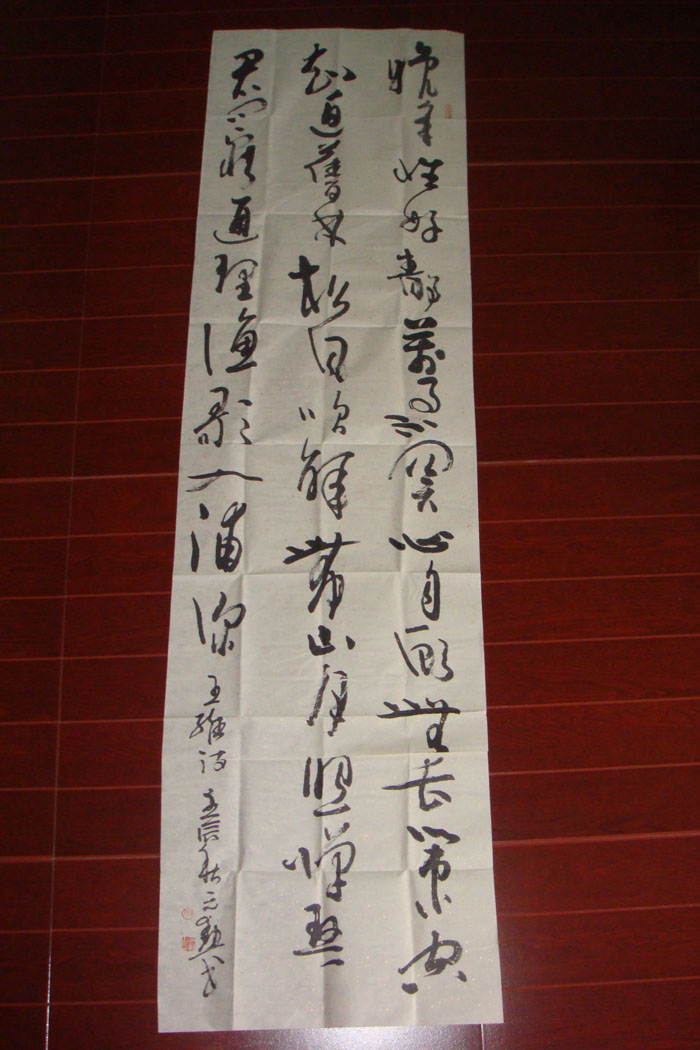 晚年惟好靜萬事不關心自顧無長策空
知返舊林松風吹解帶山月照彈琴
君問窮通理漁歌入浦深
王維詩